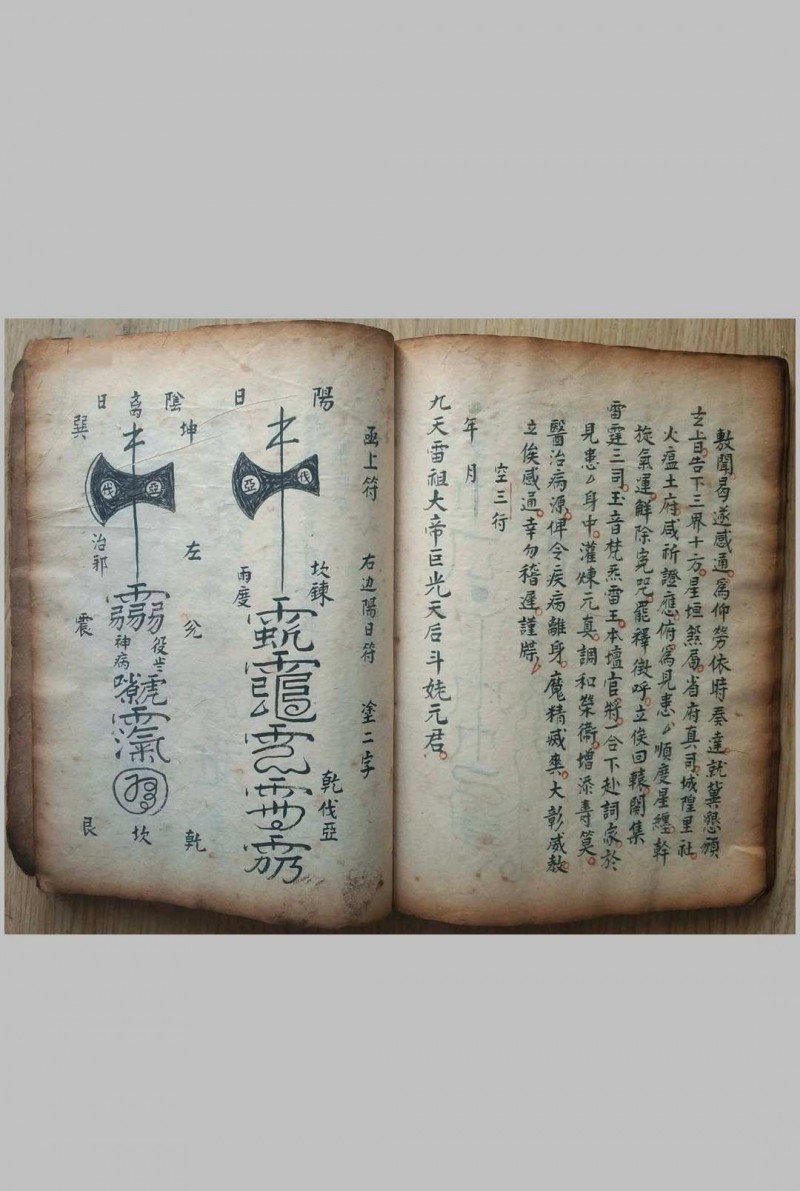 敷聞曷遂感通為仰勞依時奏達就冀懇頒
玄旨告下三界十方星垣煞局省府真司城隍里社
火瘟土府咸祈證應俯為見患厶順度星纏幹
旋氣運解除寃咒罷釋徵呼立俟回轅関集
雷霆三司玉音梵炁雷王本壇官將一合下赴詞家於
見患厶身中灌煉元真調和榮衛增添壽筭
醫治病源俾令疾病離身魔精滅爽大彰威赦
立俟感通幸勿稽遲謹牒
空三行
年 月
九天雷祖大帝巨光天后斗姥元君
函上符 右边陽日符 塗二字
陽日
亞 伐
坎鍊
雨度
乾伐亞
陰日
離
坤
巽
伐 亞
左
治邪
兌
震
役
神病
乾
坎
艮